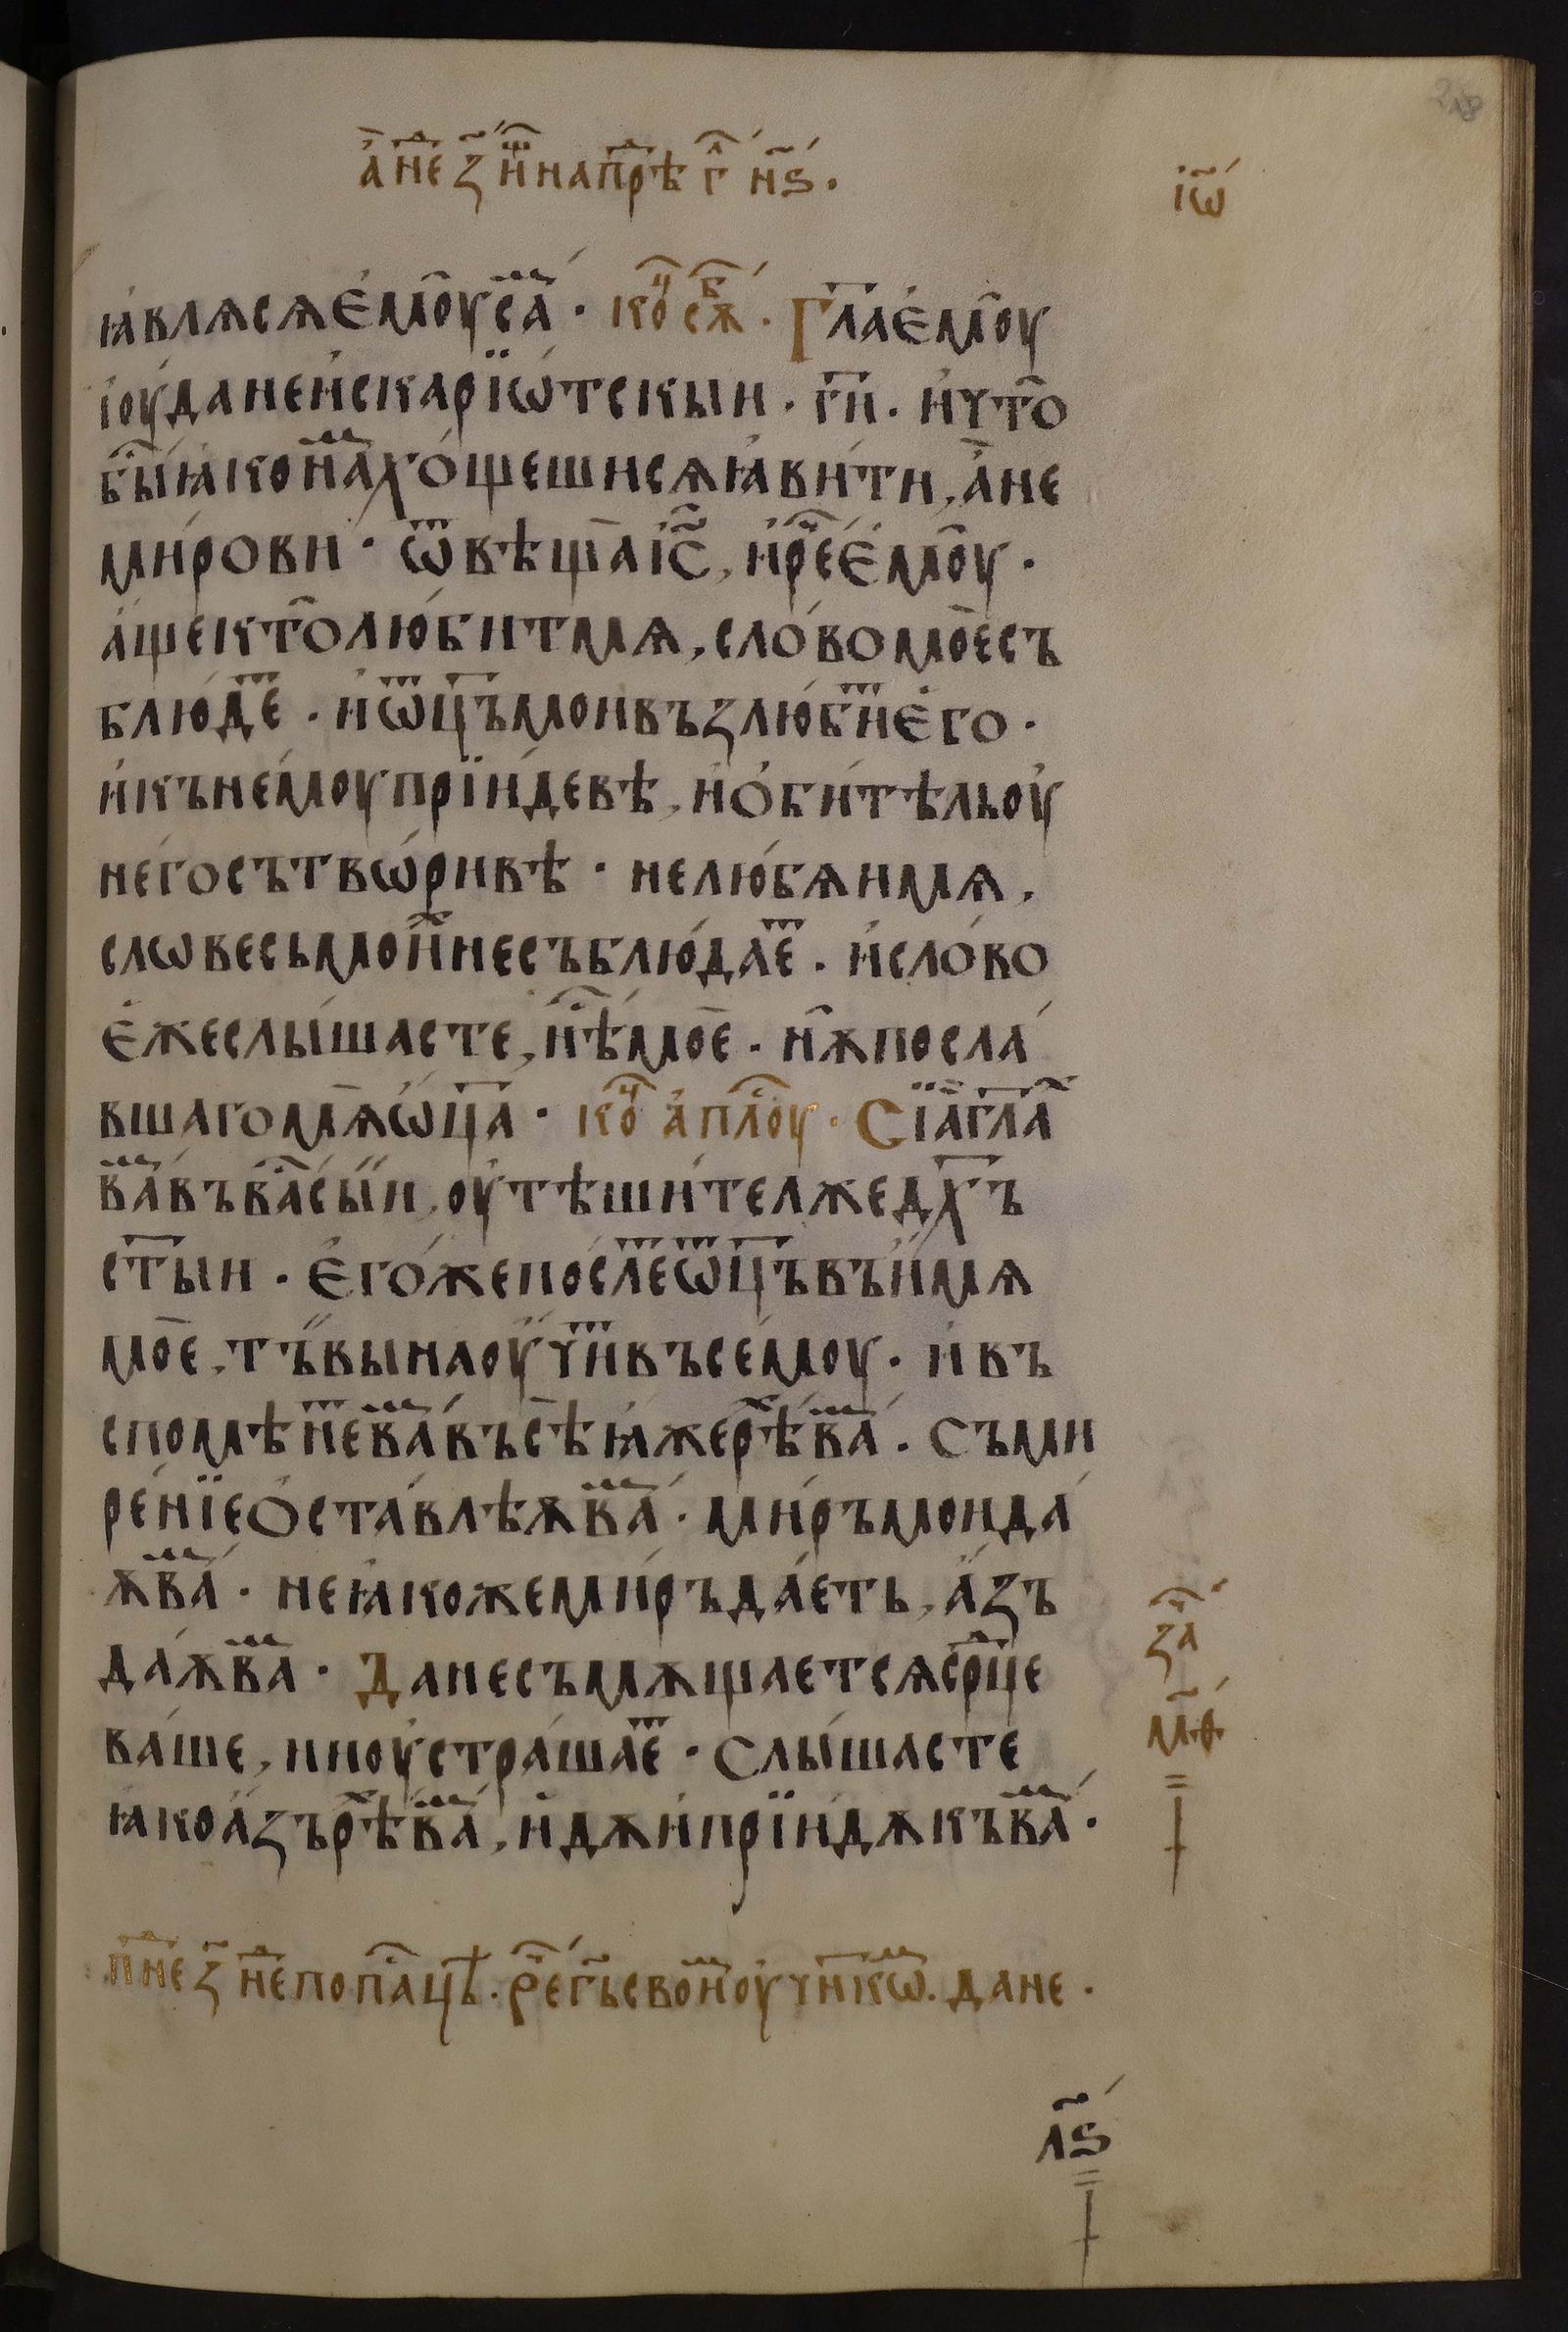 а҃ неⷣ з҃ иⷲ напрѣⷣ гⷧ н҃ѕ.
іѡ҃
ꙗвлѧсѧ емоу саⷨ · коⷰ҇ сѫⷠ҇. Гл҃а емоу
іоуда не искаріѡтскыи. гн҃. и что
быⷭ҇ ꙗко наⷨ хощеши сѧ ꙗвити, а не
мирови · ѿвѣща іс҃, и реⷱ҇ емоу.
аще кто любит мѧ, слово мое съ
блюдеⷮ. и ѿц҃ъ мои възлюбиⷮ его.
и къ немоу пріидевѣ, и обитѣль оу
него сътворивѣ · не любѧи мѧ,
словесь моиⷯ не съблюдаеⷮ. и слово
еже слышасте, нѣⷭ҇ мое. нѫ посла
вшаго мѧ ѡц҃а · коⷰ҇ апⷭ҇лоу. Сіа гл҃а
ваⷨ въ ваⷭ҇ сыи, оутѣшител же дх҃ъ
ст҃ыи. егоже послеⷮ ѿц҃ъ въ имѧ
мое, тъ вы наоучиⷮ въсемоу. и въ
спомѣнеⷮ ваⷨ въсѣ ꙗже рѣⷯ ваⷨ. съми
реніе оставлѣѫ ваⷨ. миръ мои да
ѫ ваⷨ. не ꙗкоже миръ даеть, азъ
даѫ ваⷨ. Да не съмѫщаетсѧ срⷣце
ваше, ни оустрашаеⷮ. слышасте
ꙗко азъ рѣⷯ ваⷨ, идѫ и пріидѫ къ ваⷨ.
заⷱ҇
м҃ѳ
пⷩ҇неⷣ з҃ неⷣ по паⷭ҇цѣ. реⷱ҇ гь҃ своиⷨ оучн҃кѡⷨ. да не.
л҃ѕ